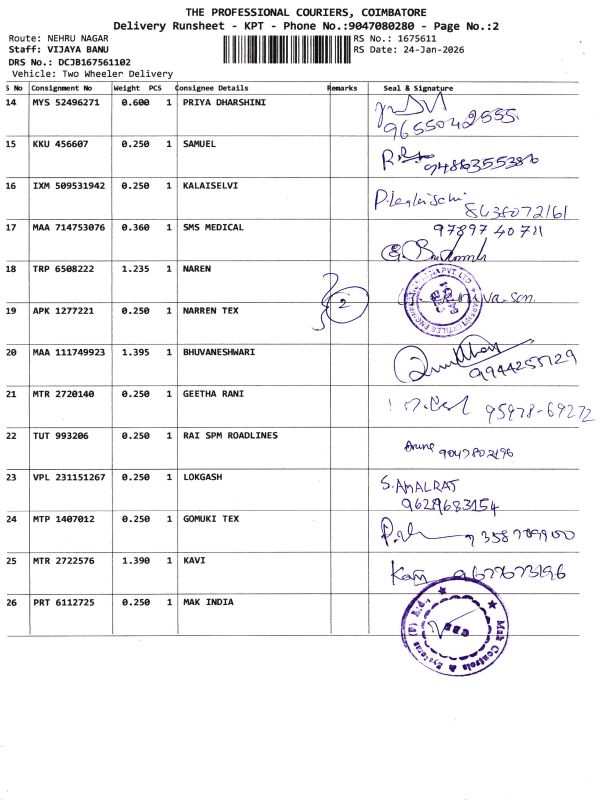 THE PROFESSIONAL COURIERS, COIMBATORE
Delivery Runsheet - KPT - Phone No.:9047080280 - Page No.:2
Route: NEHRU NAGAR RS No.: 1675611
Staff: VIJAYA BANU RS Date: 24-Jan-2026
DRS No.: DCJB167561102
Vehicle: Two Wheeler Delivery
S No Consignment No Weight PCS Consignee Details Remarks Seal & Signature
14 MYS 52496271 0.600 1 PRIYA DHARSHINI
9655042555
15 KKU 456607 0.250 1 SAMUEL
9486355386
16 IXM 509531942 0.250 1 KALAISELVI
8438072161
17 MAA 714753076 0.360 1 SMS MEDICAL 97897 40711
18 TRP 6508222 1.235 1 NAREN
2
19 APK 1277221 0.250 1 NARREN TEX
20 MAA 111749923 1.395 1 BHUVANESHWARI
9944255729
21 MTR 2720140 0.250 1 GEETHA RANI 95978-69272
22 TUT 993206 0.250 1 RAI SPM ROADLINES
9047802196
23 VPL 231151267 0.250 1 LOKGASH S.AMALRAJ
9629683154
24 MTP 1407012 0.250 1 GOMUKI TEX
25 MTR 2722576 1.390 1 KAVI
9677673196
26 PRT 6112725 0.250 1 MAK INDIA
Mak Controls & Systems (P) Ltd.
CBE